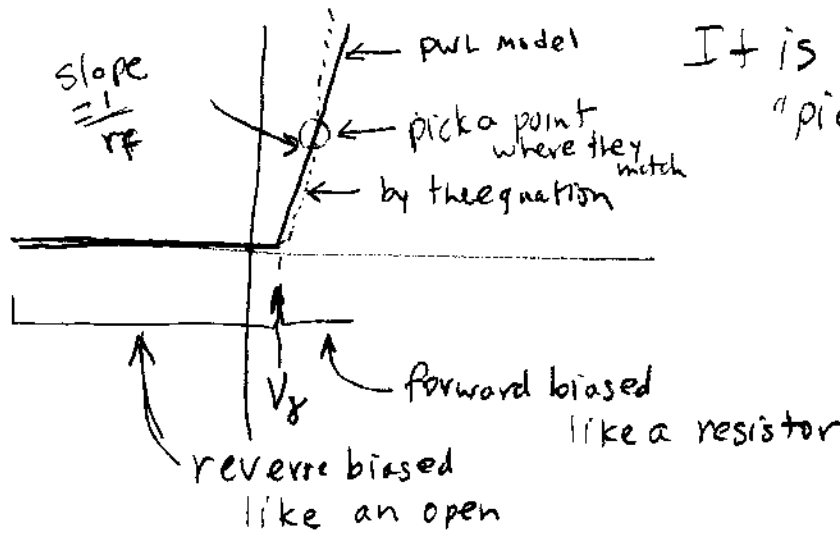 slope
= 1
rf
PWL model
pick a point
where they
match
by the equation
It is
"pic
Vγ
forward biased
like a resistor
reverse biased
like an open